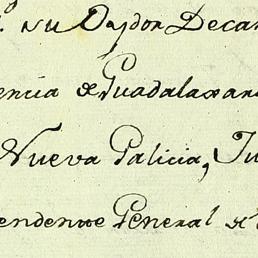 su Oydor Decan
encia de Guadalaxara
Nueva Galicia, Ju
endente General de